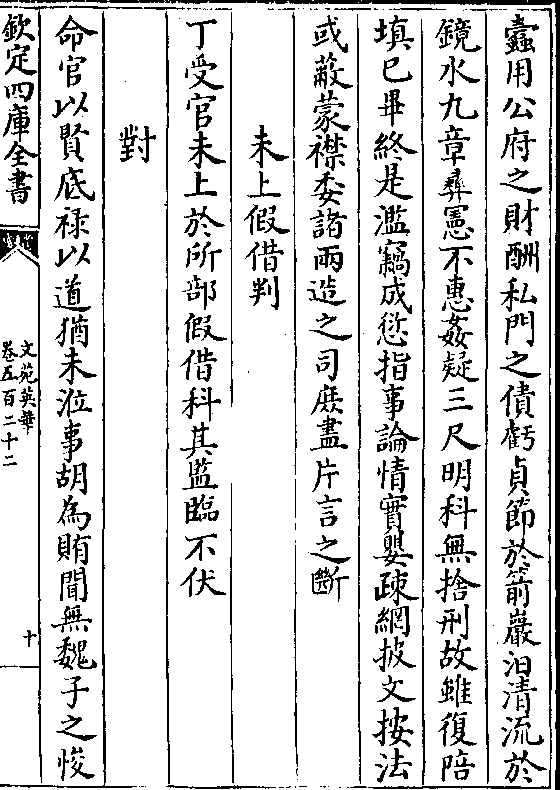 蠹用公府之財酬私門之債虧貞節於箭嚴汩清流於
鏡水九章彛憲不惠姦疑三尺明科無捨刑故雖復陪
填已畢終是濫竊成愆指事論情實嬰疎網披文按法
或蔽蒙襟委諸兩造之司庶盡片言之斷
未上假借判
丁受官未上於所部假借科其監臨不伏
對
命官以賢底禄以道猶未涖事胡為賄聞無魏子之悛
欽定四庫全書
文苑英華
卷五百二十二
十